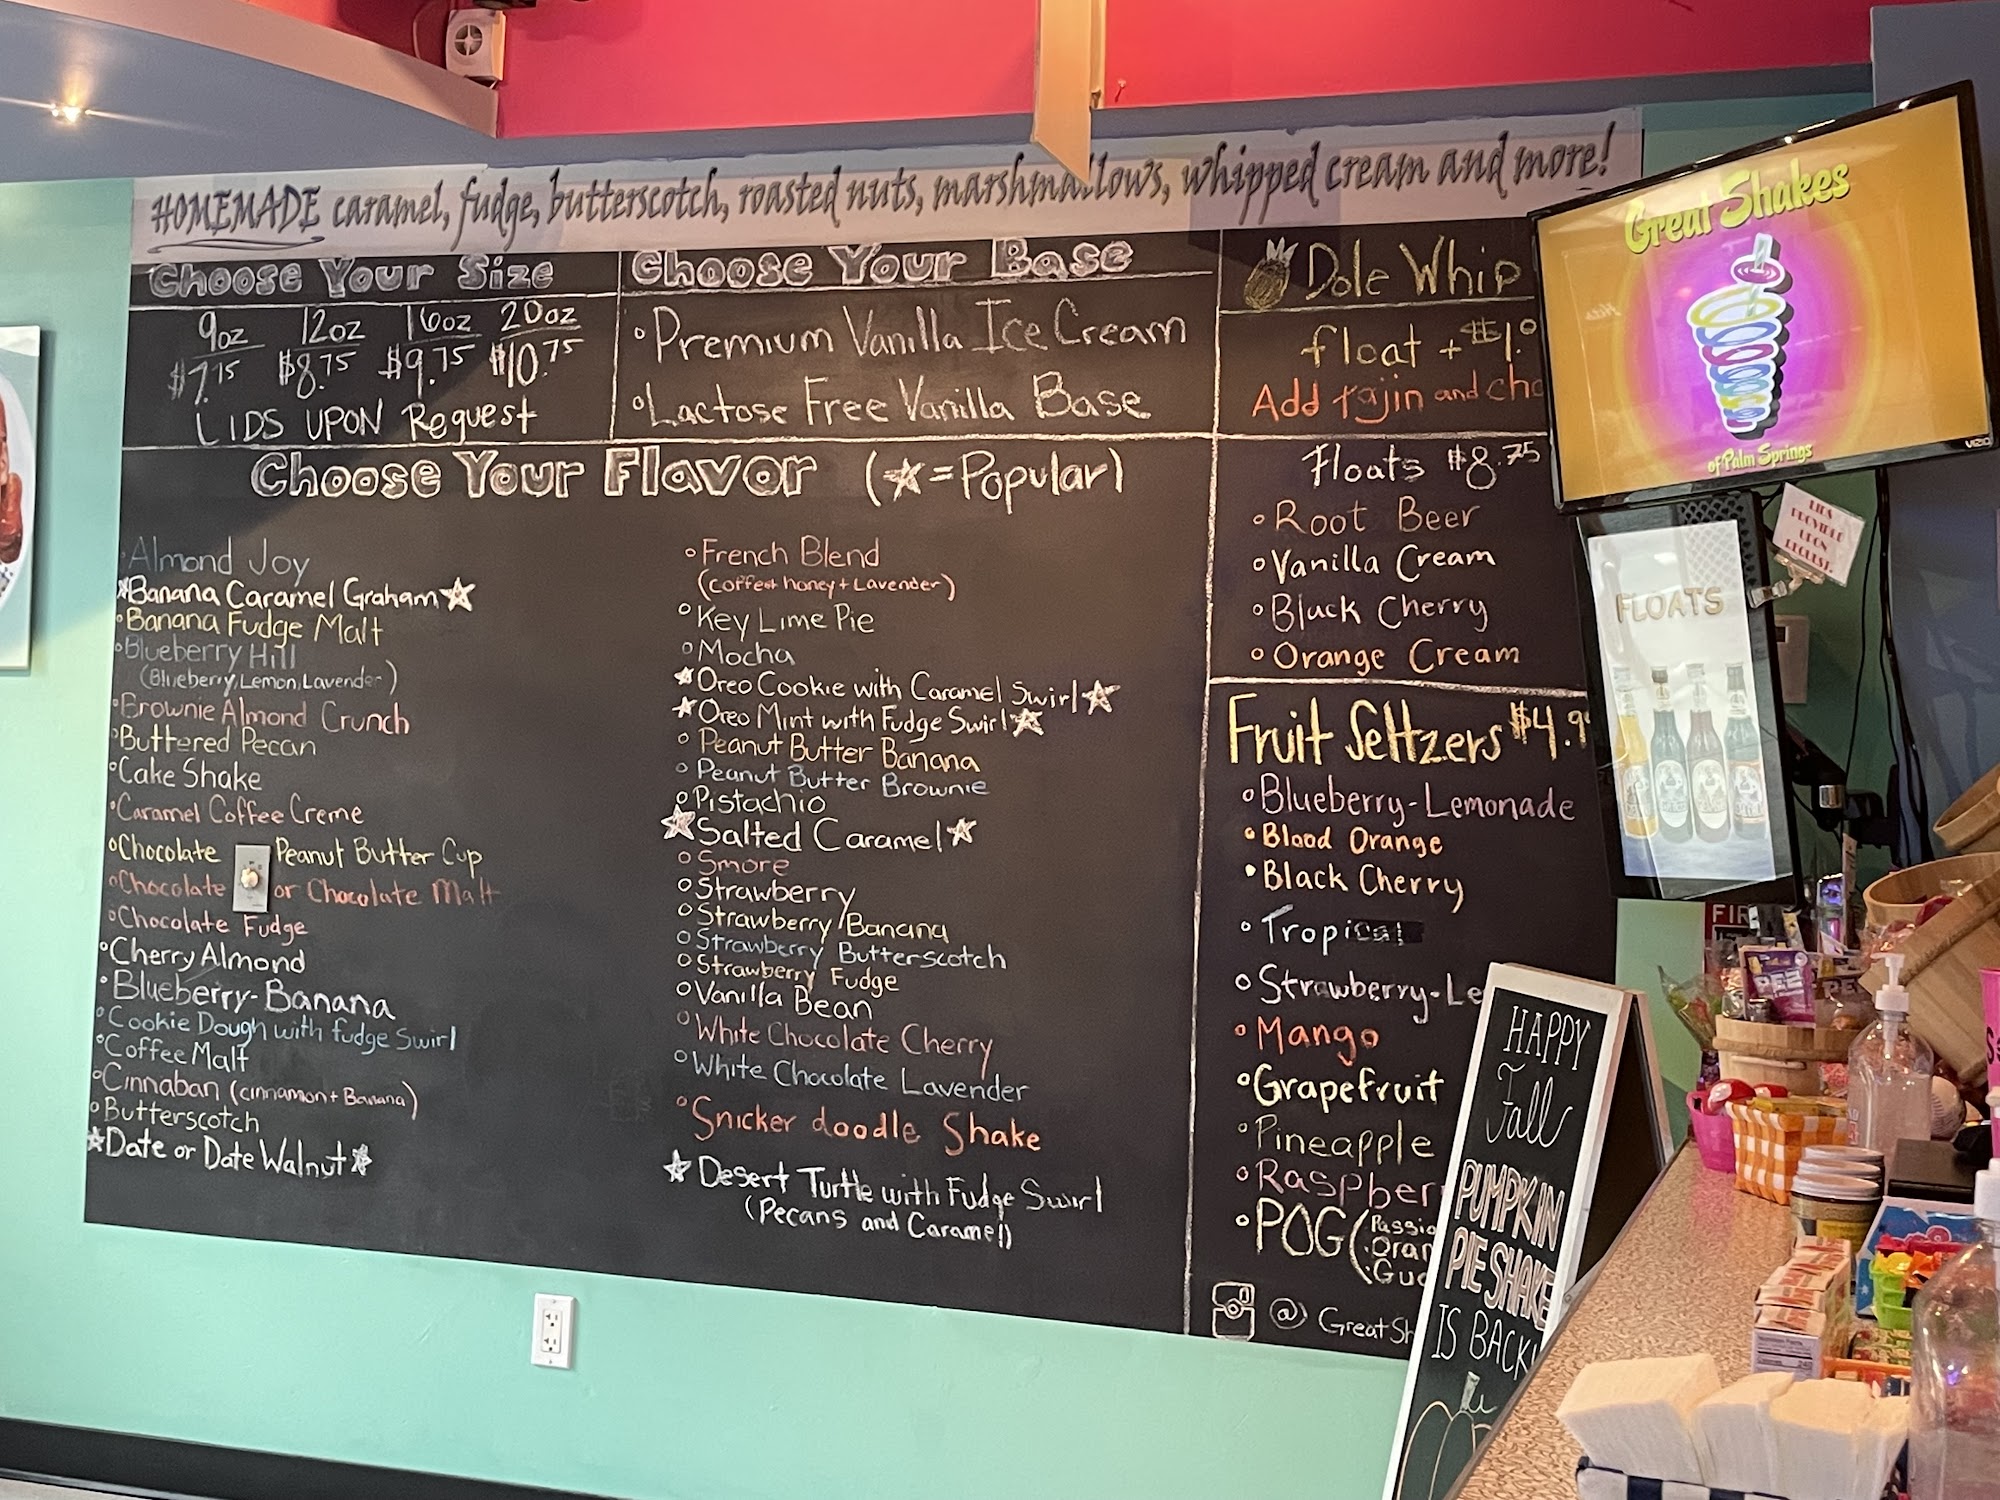 HOMEMADE caramel, fudge, butterscotch, roasted nuts, marshmallows, whipped cream and more!
Choose Your Size
9oz 12oz 16oz 20oz
$7.75 $8.75 $9.75 $10.75
LIDS UPON Request
Choose Your Base
Premium Vanilla Ice Cream
Lactose Free Vanilla Base
Choose Your Flavor (★=Popular)
Almond Joy
★Banana Caramel Graham★
Banana Fudge Malt
Blueberry Hill
(Blueberry, Lemon, Lavender)
Brownie Almond Crunch
Buttered Pecan
Cake Shake
Caramel Coffee Creme
Chocolate Peanut Butter Cup
Chocolate or Chocolate Malt
Chocolate Fudge
Cherry Almond
Blueberry-Banana
Cookie Dough with fudge Swirl
Coffee Malt
Cinnaban (cinnamon + Banana)
Butterscotch
★Date or Date Walnut★
French Blend
(Coffee+ honey + Lavender)
Key Lime Pie
Mocha
★Oreo Cookie with Caramel Swirl★
★Oreo Mint with Fudge Swirl★
Peanut Butter Banana
Peanut Butter Brownie
Pistachio
★Salted Caramel★
Smore
Strawberry
Strawberry/Banana
Strawberry Butterscotch
Strawberry Fudge
Vanilla Bean
White Chocolate Cherry
White Chocolate Lavender
Snicker doodle Shake
★Desert Turtle with Fudge Swirl
(Pecans and Caramel)
Dole Whip
float + $1.0
Add tajin and cho
Floats $8.75
Root Beer
Vanilla Cream
Black Cherry
Orange Cream
Fruit Seltzers $4.9
Blueberry-Lemonade
Blood Orange
Black Cherry
Tropical
Strawberry-Le
Mango
Grapefruit
Pineapple
Raspber
POG (Passio
Oran
Gua
@ GreatSh
Great Shakes
of Palm Springs
VIZIO
LIDS
PROVIDED
UPON
REQUEST.
FLOATS
FIR
PEZ
HAPPY
Fall
PUMPKIN
PIE SHAKE
IS BACK!